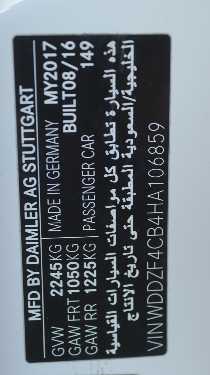 MFD BY DAIMLER AG STUTTGART
GVW 2245KG MADE IN GERMANY MY2017
GAW FRT 1050KG BUILT08/16
GAW RR 1225KG PASSENGER CAR 149
هذه السيارة تطابق كل مواصفات السيارات القياسية
الخليجية/السعودية المطبقة حتى تاريخ الانتاج
VIN WDDZF4CB4HA106859